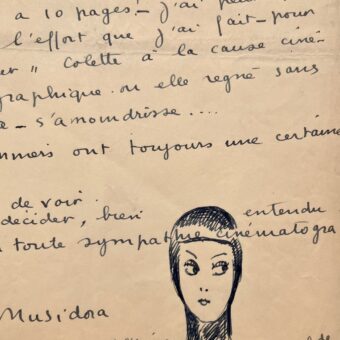 a 10 pages! - j'ai peur
l'effort que j'ai fait - pour
er" Colette à la cause ciné-
graphique. ou elle regne sans
e - s'amoindrisse....
ommeis ont toujours une certaine
de voir.
decider, bien entendu
toute sympathie cinématogra
Musidora